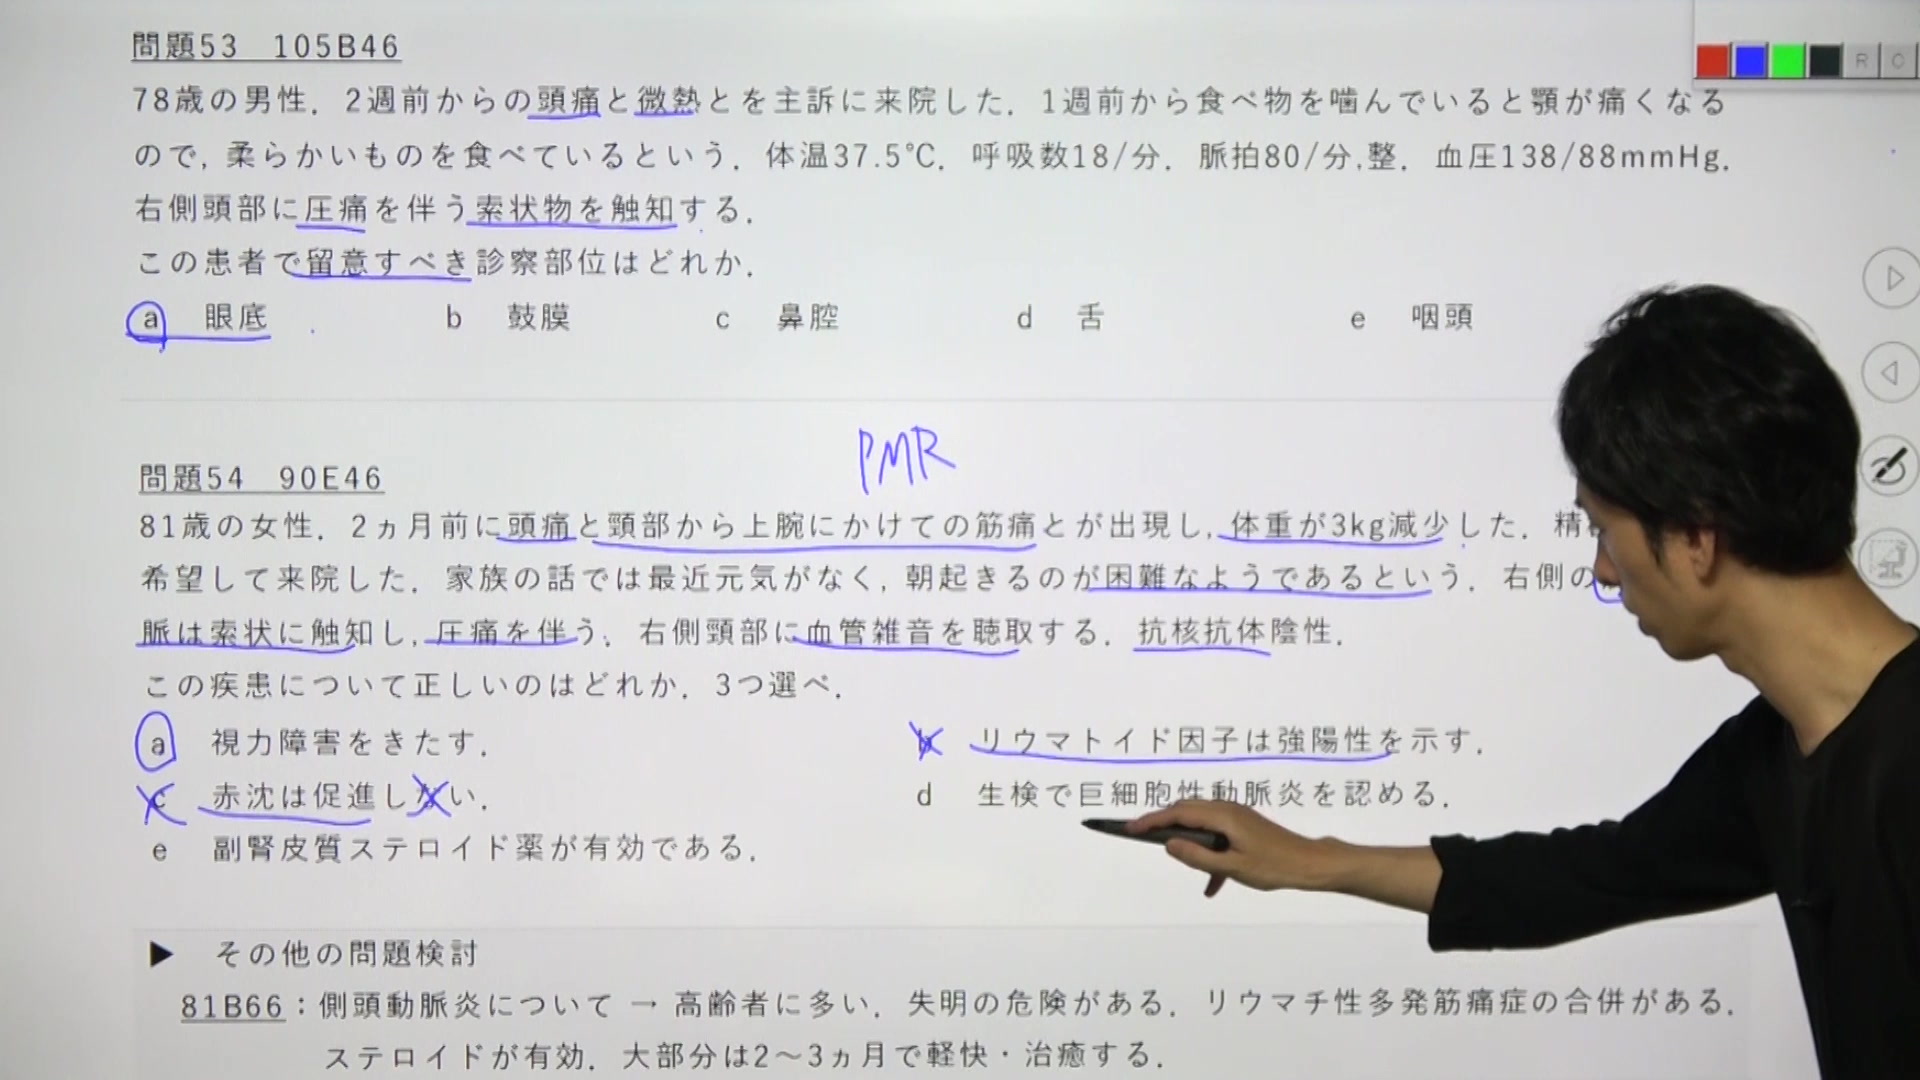 問題53　105B46
R C
78歳の男性．2週前からの頭痛と微熱とを主訴に来院した．1週前から食べ物を噛んでいると顎が痛くなる
ので，柔らかいものを食べているという．体温37.5℃．呼吸数18/分．脈拍80/分,整．血圧138/88mmHg．
右側頭部に圧痛を伴う索状物を触知する．
この患者で留意すべき診察部位はどれか．
a　眼底　b　鼓膜　c　鼻腔　d　舌　e　咽頭
PMR
問題54　90E46
81歳の女性．2ヵ月前に頭痛と頸部から上腕にかけての筋痛とが出現し，体重が3kg減少した．精
希望して来院した．家族の話では最近元気がなく，朝起きるのが困難なようであるという．右側の
脈は索状に触知し，圧痛を伴う．右側頸部に血管雑音を聴取する．抗核抗体陰性．
この疾患について正しいのはどれか．3つ選べ．
a　視力障害をきたす．　b　リウマトイド因子は強陽性を示す．
c　赤沈は促進しない．　d　生検で巨細胞性動脈炎を認める．
e　副腎皮質ステロイド薬が有効である．
▶　その他の問題検討
81B66：側頭動脈炎について → 高齢者に多い．失明の危険がある．リウマチ性多発筋痛症の合併がある．
ステロイドが有効．大部分は2～3ヵ月で軽快・治癒する．